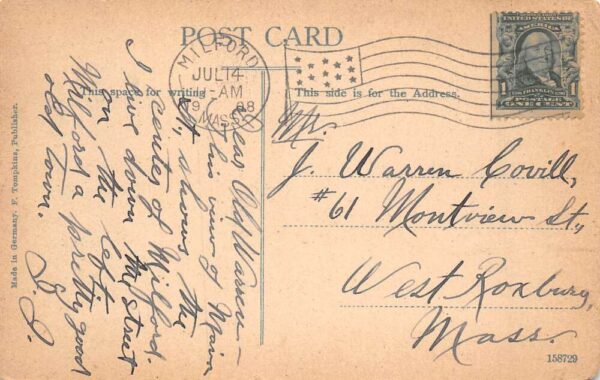 POST CARD
MILFORD
JUL 14
-AM
9 08
MASS.
UNITED STATES OF
AMERICA
1 1
POSTAGE
ONE CENT
This space for writing
This side is for the Address.
Dear Old Warren—
This view of Main
St, shows the
center of Milford.
I live down the street
on the left.
Milford a pretty good
old town.
J. J.
Mr.
J. Warren Covill,
#61 Montview St.,
West Roxbury,
Mass.
Made in Germany. F. Tompkins, Publisher.
158729